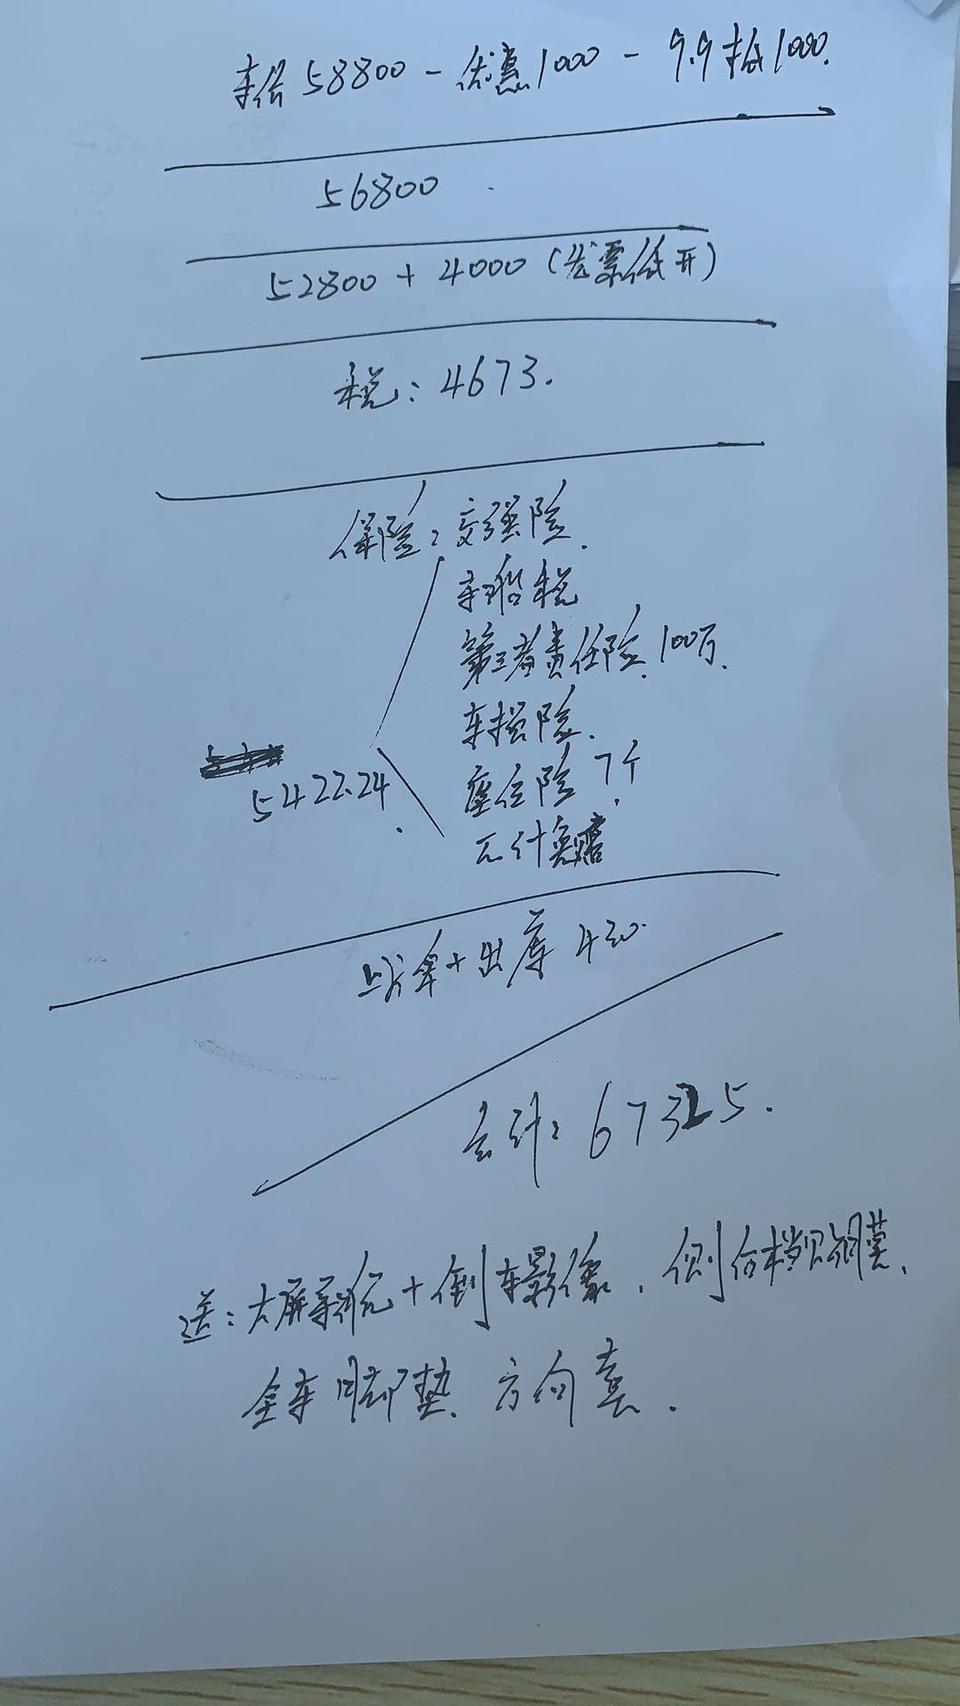 车价58800-优惠1000-9.9抵1000.
56800
52800+4000(发票低开)
税:4673.
保险:交强险.
车船税
第三者责任险.100万.
车损险.
座位险7个.
5422.24.
不计免赔
上牌+出库430.
合计:67325.
送:大屏导航+倒车影像.侧向档贴钢膜.
全车脚垫.方向套.